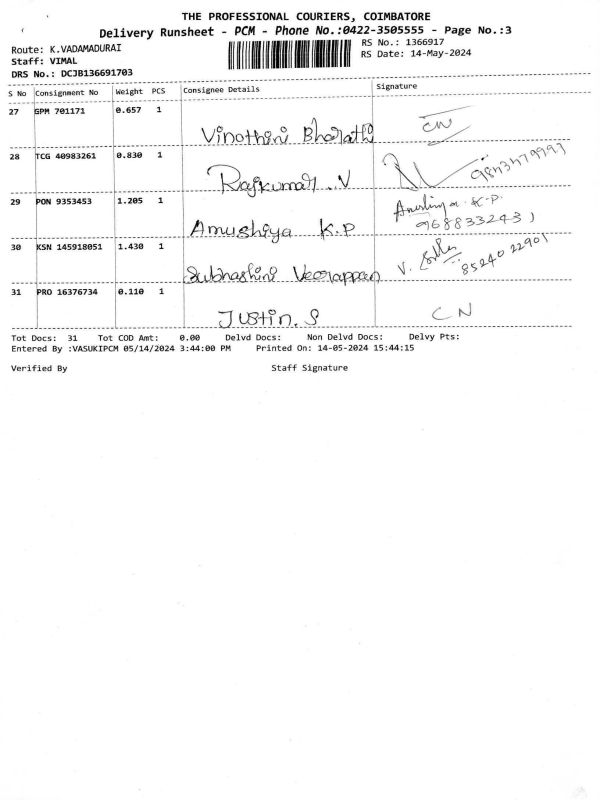 THE PROFESSIONAL COURIERS, COIMBATORE
Delivery Runsheet - PCM - Phone No.:0422-3505555 - Page No.:3
Route: K.VADAMADURAI
RS No.: 1366917
Staff: VIMAL
RS Date: 14-May-2024
DRS No.: DCJB136691703
S No Consignment No Weight PCS Consignee Details Signature
27 GPM 701171 0.657 1
Vinothini Bharathi CN
28 TCG 40983261 0.830 1
Rajkumar. V
29 PON 9353453 1.205 1
Amushiya K.P 9688332431
30 KSN 145918051 1.430 1
Subhashini Veerappan V. 8524022901
31 PRO 16376734 0.110 1
Justin. S CN
Tot Docs: 31 Tot COD Amt: 0.00 Delvd Docs: Non Delvd Docs: Delvy Pts:
Entered By :VASUKIPCM 05/14/2024 3:44:00 PM Printed On: 14-05-2024 15:44:15
Verified By Staff Signature